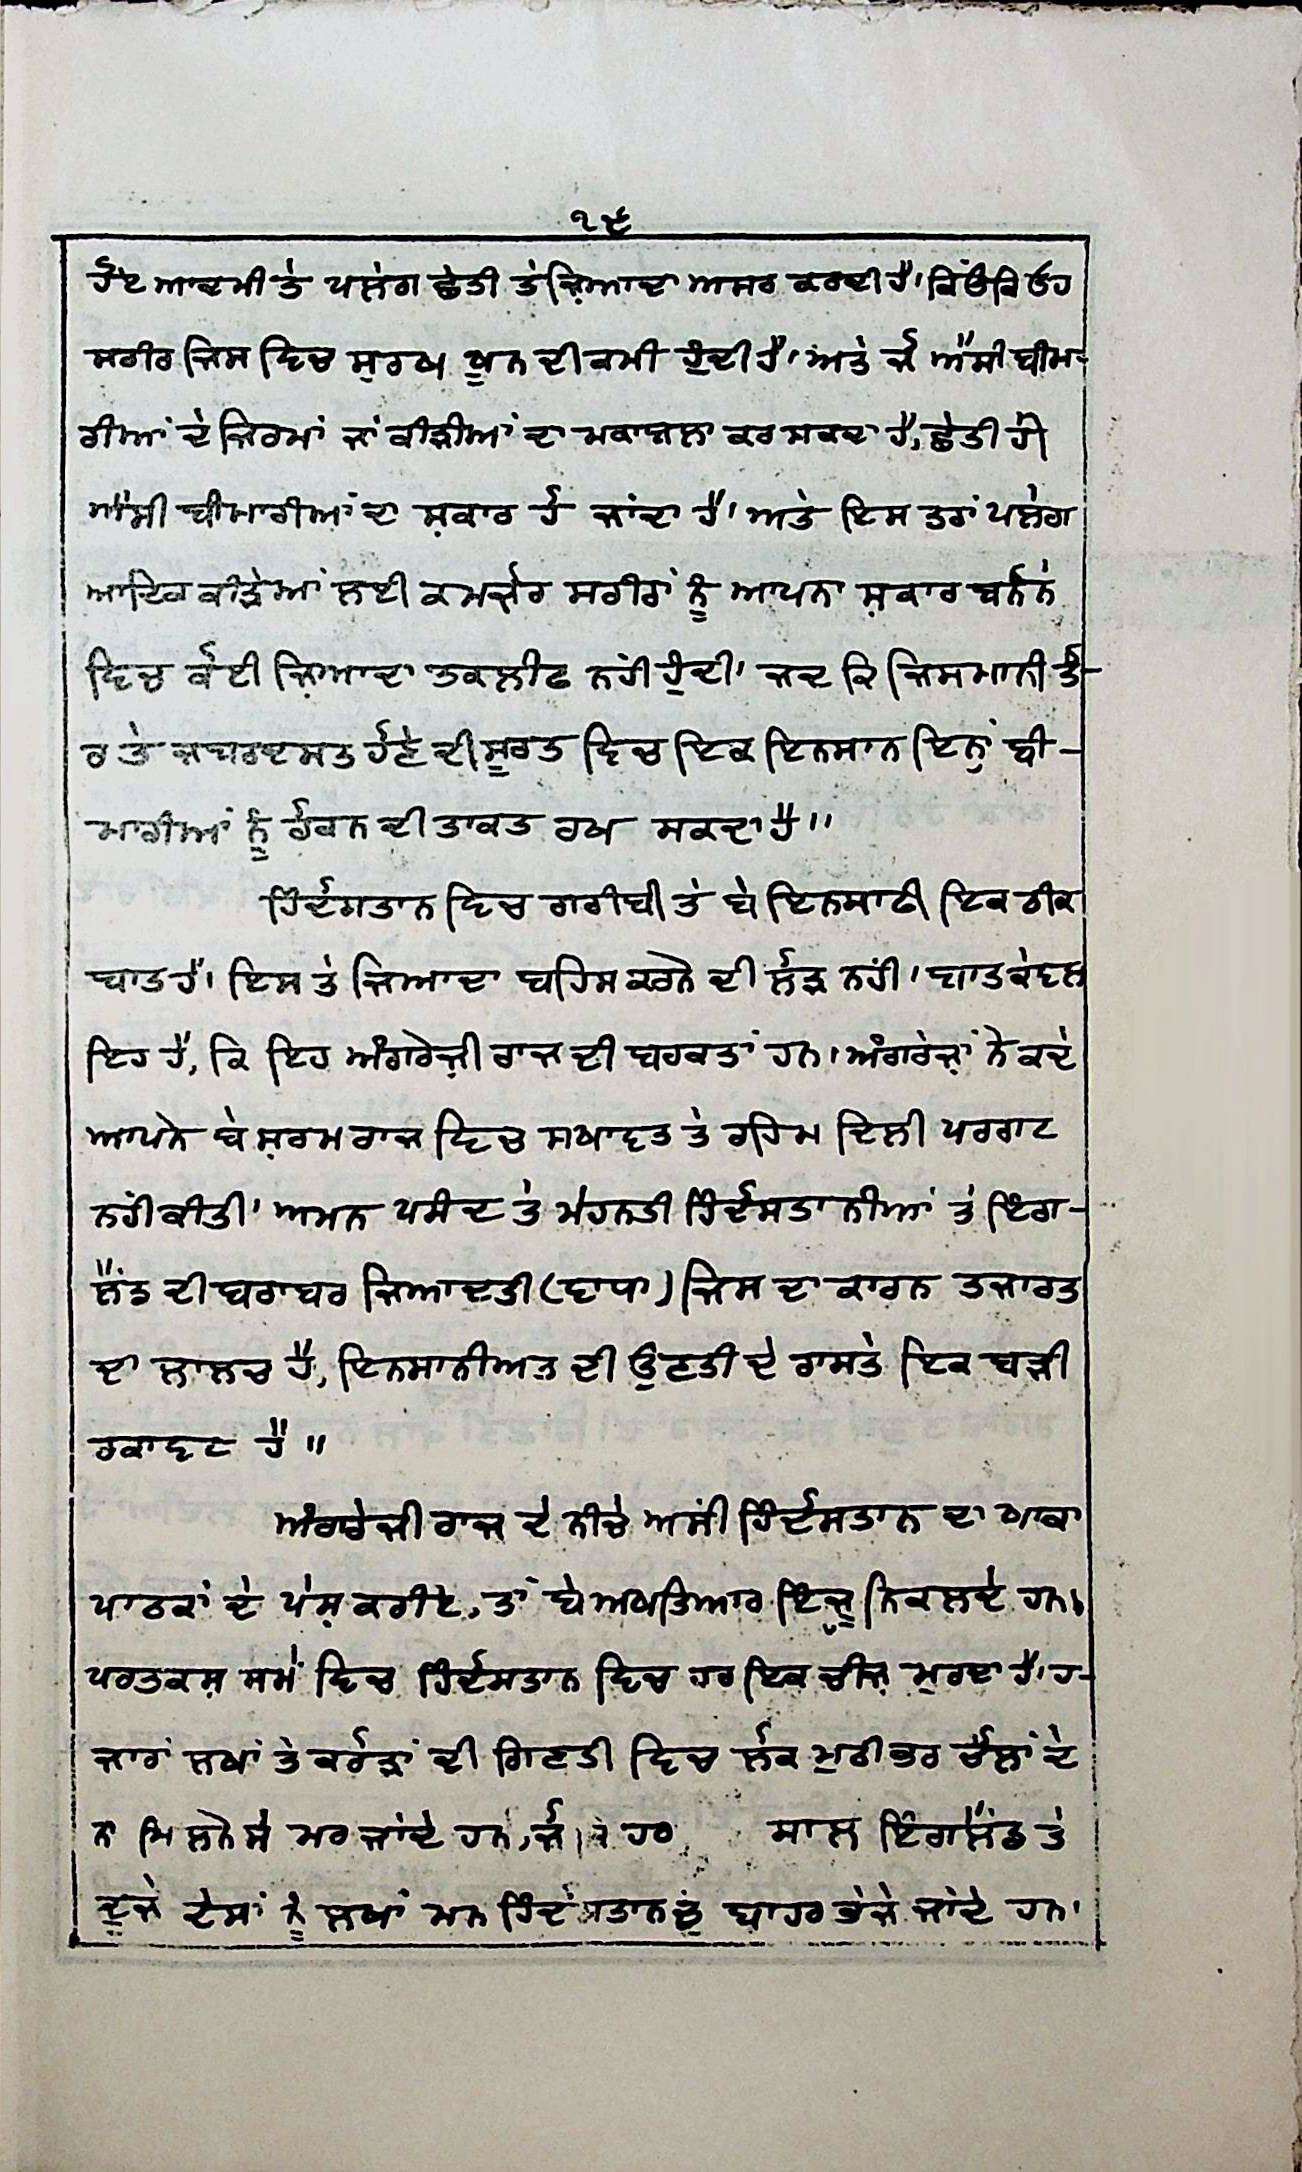 ੧੯
ਹੋਏ ਆਦਮੀ ਤੇ ਪਲੇਗ ਛੇਤੀ ਤੇ ਜ਼ਿਆਦਾ ਅਸਰ ਕਰਦੀ ਹੈ' ਕਿਂਉਕਿ ਓਹ
ਸਰੀਰ ਜਿਸ ਵਿਚ ਸੁਰਖ ਖੂਨ ਦੀ ਕਮੀ ਹੁੰਦੀ ਹੈ' ਅਤੇ ਜੋ ਐਸੀ ਬੀਮਾ-
ਰੀਆਂ ਦੇ ਜਿਰਮਾਂ ਜਾਂ ਕੀੜੀਆਂ ਦਾ ਮਕਾਬਲਾ ਕਰ ਸਕਦਾ ਹੈ, ਛੇਤੀ ਹੀ
ਐਸੀ ਬੀਮਾਰੀਆਂ ਦਾ ਸ਼ਕਾਰ ਹੋ ਜਾਂਦਾ ਹੈ' ਅਤੇ ਇਸ ਤਰਾਂ ਪਲੇਗ
ਆਦਿਕ ਕੀੜੇਆਂ ਲਈ ਕਮਜ਼ੋਰ ਸਰੀਰਾਂ ਨੂੰ ਆਪਨਾ ਸ਼ਕਾਰ ਬਨੌਨੇ
ਵਿਚ ਕੋਈ ਜ਼ਿਆਦਾ ਤਕਲੀਫ ਨਹੀਂ ਹੁੰਦੀ' ਜਦ ਕਿ ਜਿਸਮਾਨੀ ਤੌ-
ਰ ਤੇ ਜਬਰਦਸਤ ਹੋਣੇ ਦੀ ਸੂਰਤ ਵਿਚ ਇਕ ਇਨਸਾਨ ਇਨ੍ਹਾਂ ਬੀ-
ਮਾਰੀਆਂ ਨੂੰ ਰੋਕਨ ਦੀ ਤਾਕਤ ਰਖ ਸਕਦਾ ਹੈ"
ਹਿੰਦੋਸਤਾਨ ਵਿਚ ਗਰੀਬੀ ਤੇ ਬੇ ਇਨਸਾਫੀ ਇਕ ਠੀਕ
ਬਾਤ ਹੈ' ਇਸ ਤੇ ਜਿਆਦਾ ਬਹਿਸ ਕਰਨੇ ਦੀ ਲੋੜ ਨਹੀਂ' ਬਾਤ ਕੇਵਲ
ਇਹ ਹੈ, ਕਿ ਇਹ ਅੰਗਰੇਜ਼ੀ ਰਾਜ ਦੀ ਬਰਕਤਾਂ ਹਨ' ਅੰਗਰੇਜ਼ਾਂ ਨੇ ਕਦੇ
ਆਪਨੇ ਬੇ ਸ਼ਰਮ ਰਾਜ ਵਿਚ ਸਖਾਵਤ ਤੇ ਰਹਿਮ ਦਿਲੀ ਪਰਗਟ
ਨਹੀਂ ਕੀਤੀ' ਅਮਨ ਪਸੰਦ ਤੇ ਮੇਹਨਤੀ ਹਿੰਦੋਸਤਾਨੀਆਂ ਤੇ ਇੰਗ-
ਲੈਂਡ ਦੀ ਬਰਾਬਰ ਜਿਆਦਤੀ (ਵਾਧਾ) ਜਿਸ ਦਾ ਕਾਰਨ ਤਜਾਰਤ
ਦਾ ਲਾਲਚ ਹੈ, ਇਨਸਾਨੀਅਤ ਦੀ ਉਣਤੀ ਦੇ ਰਾਸਤੇ ਇਕ ਬੜੀ
ਰਕਾਵਟ ਹੈ"
ਅੰਗਰੇਜ਼ੀ ਰਾਜ ਦੇ ਨੀਚੇ ਅਸੀਂ ਹਿੰਦੋਸਤਾਨ ਦਾ ਖਾਕਾ
ਪਾਠਕਾਂ ਦੇ ਪੇਸ਼ ਕਰੀਏ, ਤਾਂ ਬੇ ਅਖਤਿਆਰ ਇੰਜੂ ਨਿਕਲਦੇ ਹਨ,
ਪਰਤਕਸ਼ ਸਮੇਂ ਵਿਚ ਹਿੰਦੋਸਤਾਨ ਵਿਚ ਹਰ ਇਕ ਚੀਜ਼ ਮੁਰਦਾ ਹੈ' ਹ-
ਜਾਰਾਂ ਲਖਾਂ ਤੇ ਕਰੋੜਾਂ ਦੀ ਗਿਣਤੀ ਵਿਚ ਲੋਕ ਮੁਠੀ ਭਰ ਚੌਲਾਂ ਦੇ
ਨਾ ਮਿਲਨੇ ਸੇ ਮਰ ਜਾਂਦੇ ਹਨ, ਹਰ ਸਾਲ ਇੰਗਲੈਂਡ ਤੇ
ਦੂਜੇ ਦੇਸਾਂ ਨੂੰ ਲਖਾਂ ਮਨ ਹਿੰਦੋਸਤਾਨ ਚੁੰ ਬਾਹਰ ਭੇਜੇ ਜਾਂਦੇ ਹਨ'